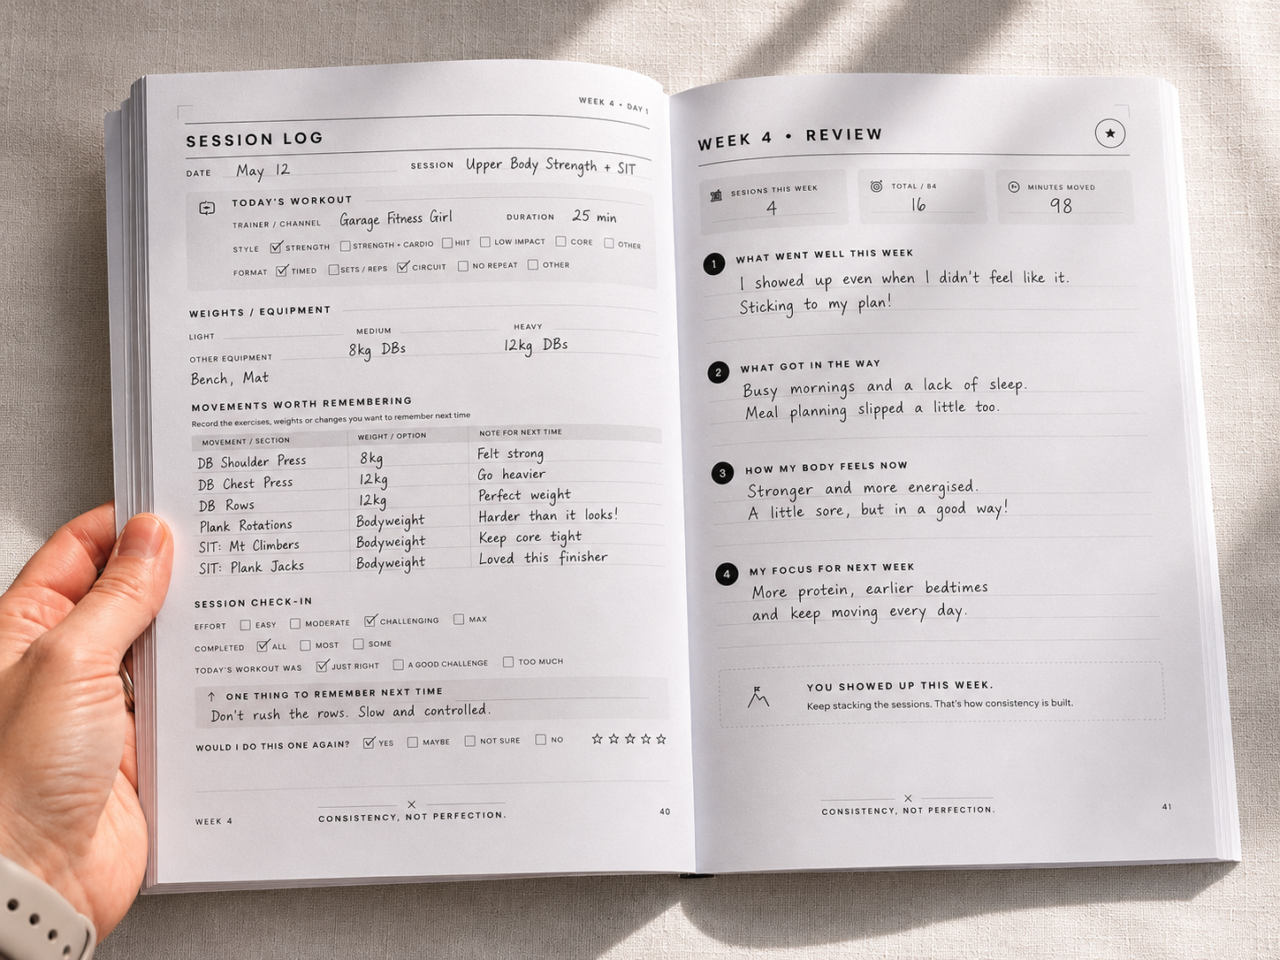 WEEK 4 • DAY 1
SESSION LOG
DATE May 12 SESSION Upper Body Strength + SIT
TODAY'S WORKOUT
TRAINER / CHANNEL Garage Fitness Girl DURATION 25 min
STYLE STRENGTH STRENGTH + CARDIO HIIT LOW IMPACT CORE OTHER
FORMAT TIMED SETS / REPS CIRCUIT NO REPEAT OTHER
WEIGHTS / EQUIPMENT
LIGHT MEDIUM HEAVY
8kg DBs 12kg DBs
OTHER EQUIPMENT
Bench, Mat
MOVEMENTS WORTH REMEMBERING
Record the exercises, weights or changes you want to remember next time
MOVEMENT / SECTION WEIGHT / OPTION NOTE FOR NEXT TIME
DB Shoulder Press 8kg Felt strong
DB Chest Press 12kg Go heavier
DB Rows 12kg Perfect weight
Plank Rotations Bodyweight Harder than it looks!
SIT: Mt Climbers Bodyweight Keep core tight
SIT: Plank Jacks Bodyweight Loved this finisher
SESSION CHECK-IN
EFFORT EASY MODERATE CHALLENGING MAX
COMPLETED ALL MOST SOME
TODAY'S WORKOUT WAS JUST RIGHT A GOOD CHALLENGE TOO MUCH
ONE THING TO REMEMBER NEXT TIME
Don't rush the rows. Slow and controlled.
WOULD I DO THIS ONE AGAIN? YES MAYBE NOT SURE NO
WEEK 4 CONSISTENCY, NOT PERFECTION. 40
WEEK 4 • REVIEW
SESIONS THIS WEEK TOTAL / 84 MINUTES MOVED
4 16 98
1 WHAT WENT WELL THIS WEEK
I showed up even when I didn't feel like it.
Sticking to my plan!
2 WHAT GOT IN THE WAY
Busy mornings and a lack of sleep.
Meal planning slipped a little too.
3 HOW MY BODY FEELS NOW
Stronger and more energised.
A little sore, but in a good way!
4 MY FOCUS FOR NEXT WEEK
More protein, earlier bedtimes
and keep moving every day.
YOU SHOWED UP THIS WEEK.
Keep stacking the sessions. That's how consistency is built.
CONSISTENCY, NOT PERFECTION. 41